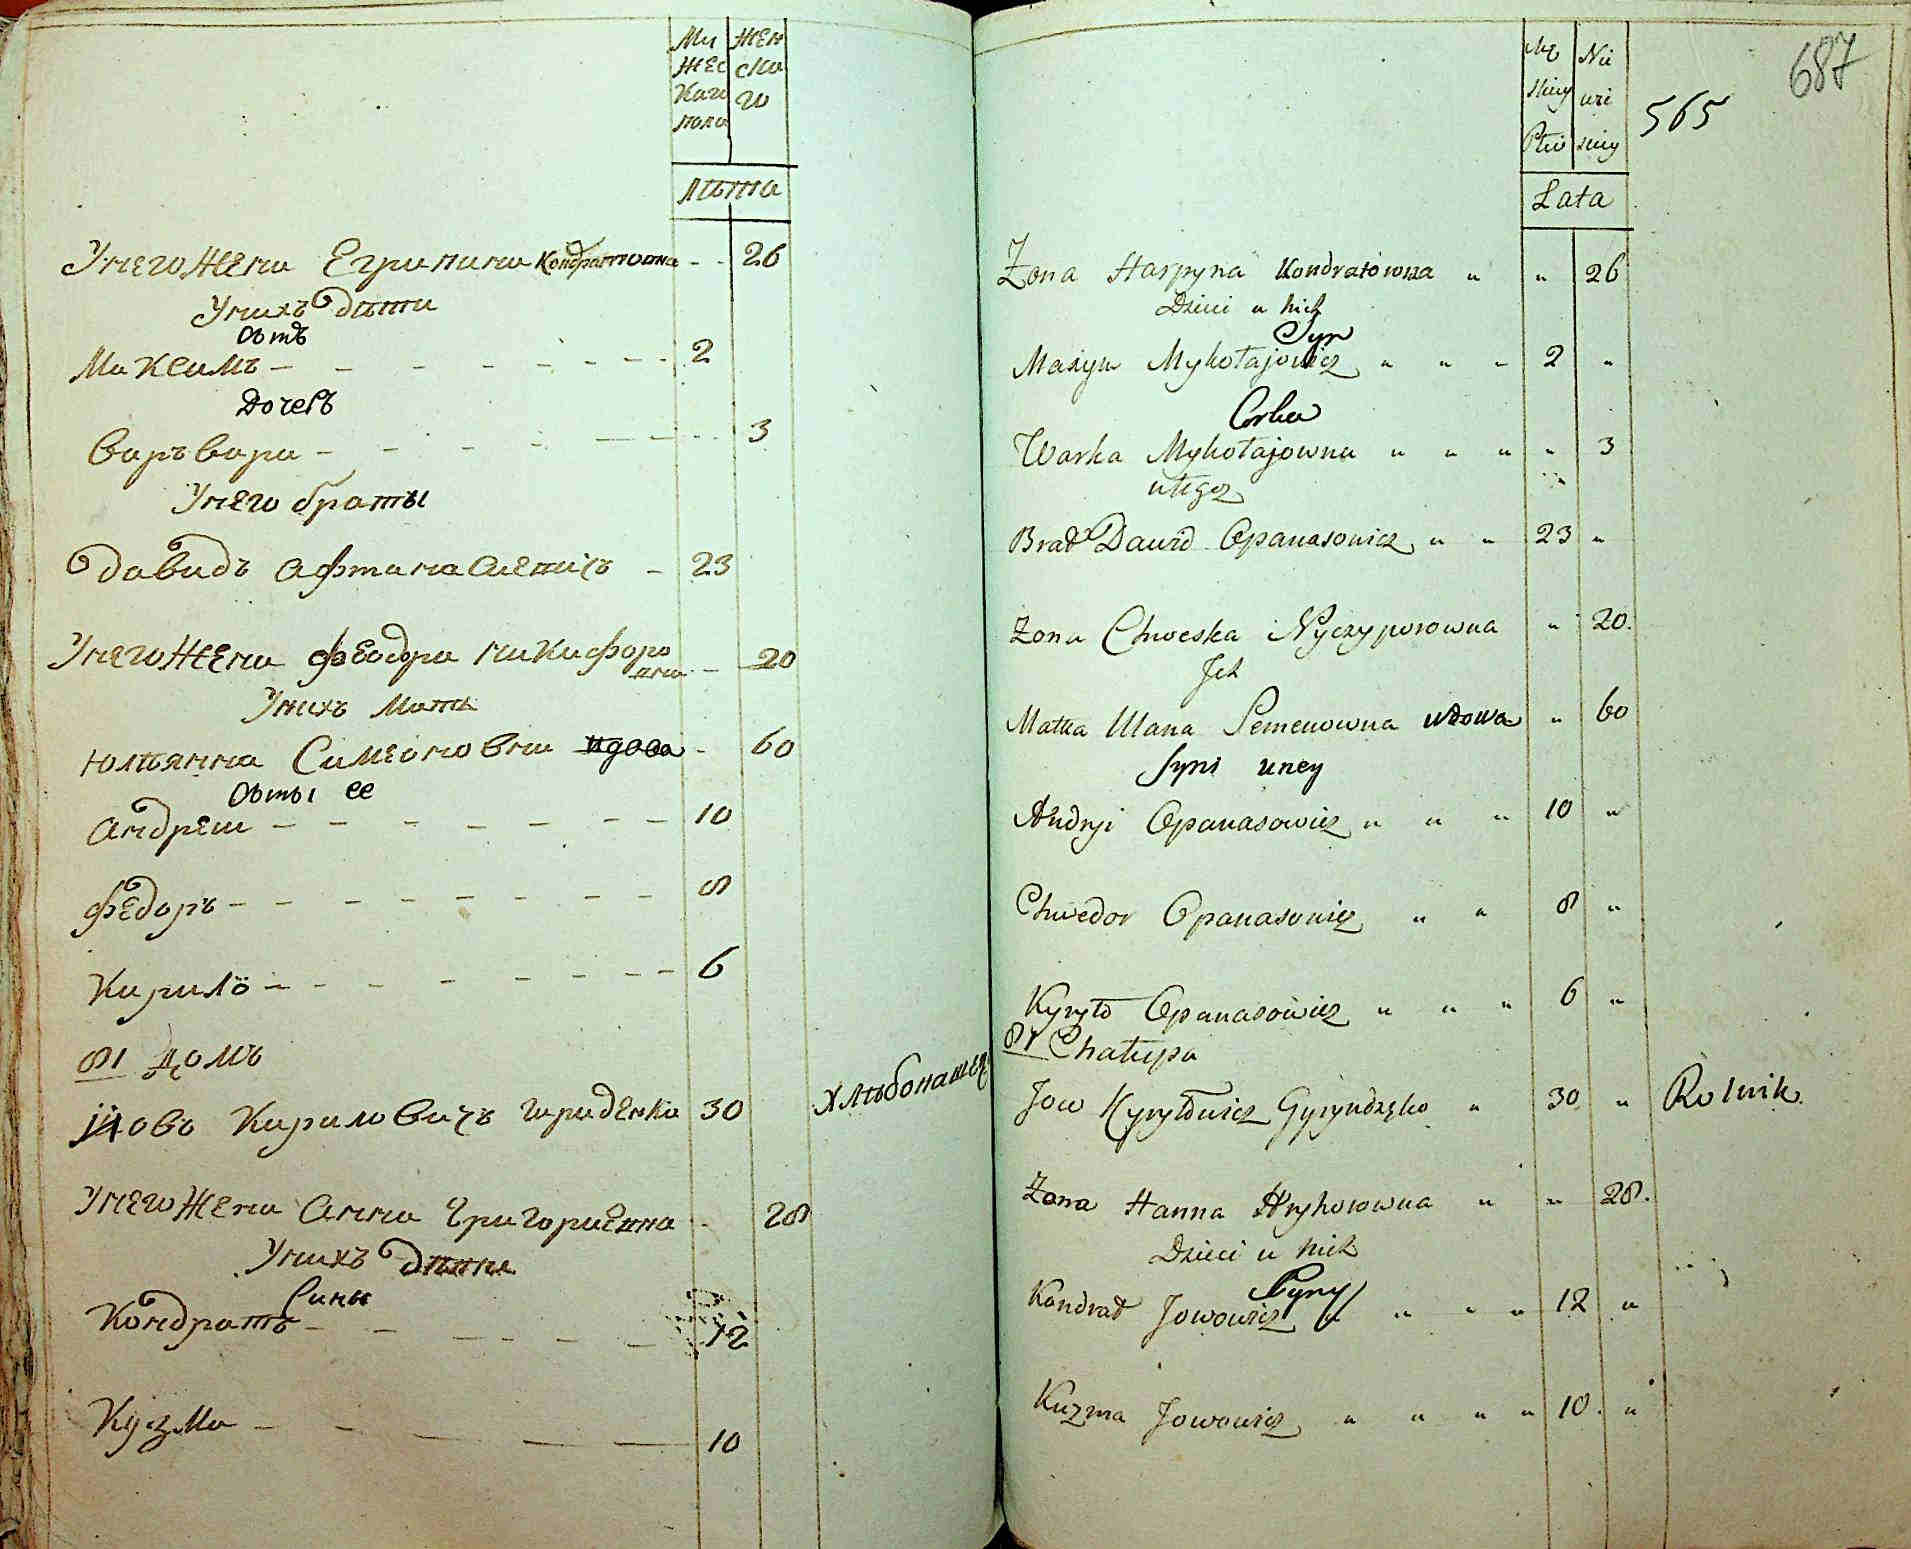 Му
жес
каго
пола
жен
ска
го
лѣта
У него жена Егрипина Кондратовна - - 26
У нихъ дѣти
сынъ
Максимъ - - - - - - - - 2
Дочеръ
Варъвара - - - - - - - 3
У него браты
Давидъ Афтанасиевичъ - 23
У него жена Феодора Никифоро
вна - 20
У нихъ мати
Юлъянна Симеоновна вдова - 60
сыны ее
Андреи - - - - - - - 10
Федоръ - - - - - - - - 8
Кирило - - - - - - - - 6
81 Домъ
Иовъ Кириловичъ Гириденко 30 Хлѣбопашец
У него жена Анна Григориевна - 28
У нихъ дѣти
Сины
Кондратъ - - - - - - 12
Кузма - - - - - 10
Mę
skiey
Płci
Nie
wie
sciey
565
687
Lata
Żona Harpyna Kondratowna " " 26
Dzieci u nich
Syn
Maxym Mykołajowicz " " " 2 "
Corka
Warka Mykołajowna " " " " 3
u tegoż
Brat Dawid Opanasowicz " " 23 "
Żona Chweska Nyczyporowna " 20.
Ich
Matka Ulana Semenowna wdowa " 60
Syni u ney
Andryi Opanasowicz " " " 10 "
Chwedor Opanasowicz " " 8 "
Kyryło Opanasowicz " " " 6 "
81 Chałupa
Jow Kyryłowicz Gyryndzęko " 30 " Rolnik.
Żona Hanna Hryhorowna " " 28.
Dzieci u nich
Syny
Kondrat Jowowicz " " " " 12 "
Kuzma Jowowicz " " " " 10. "